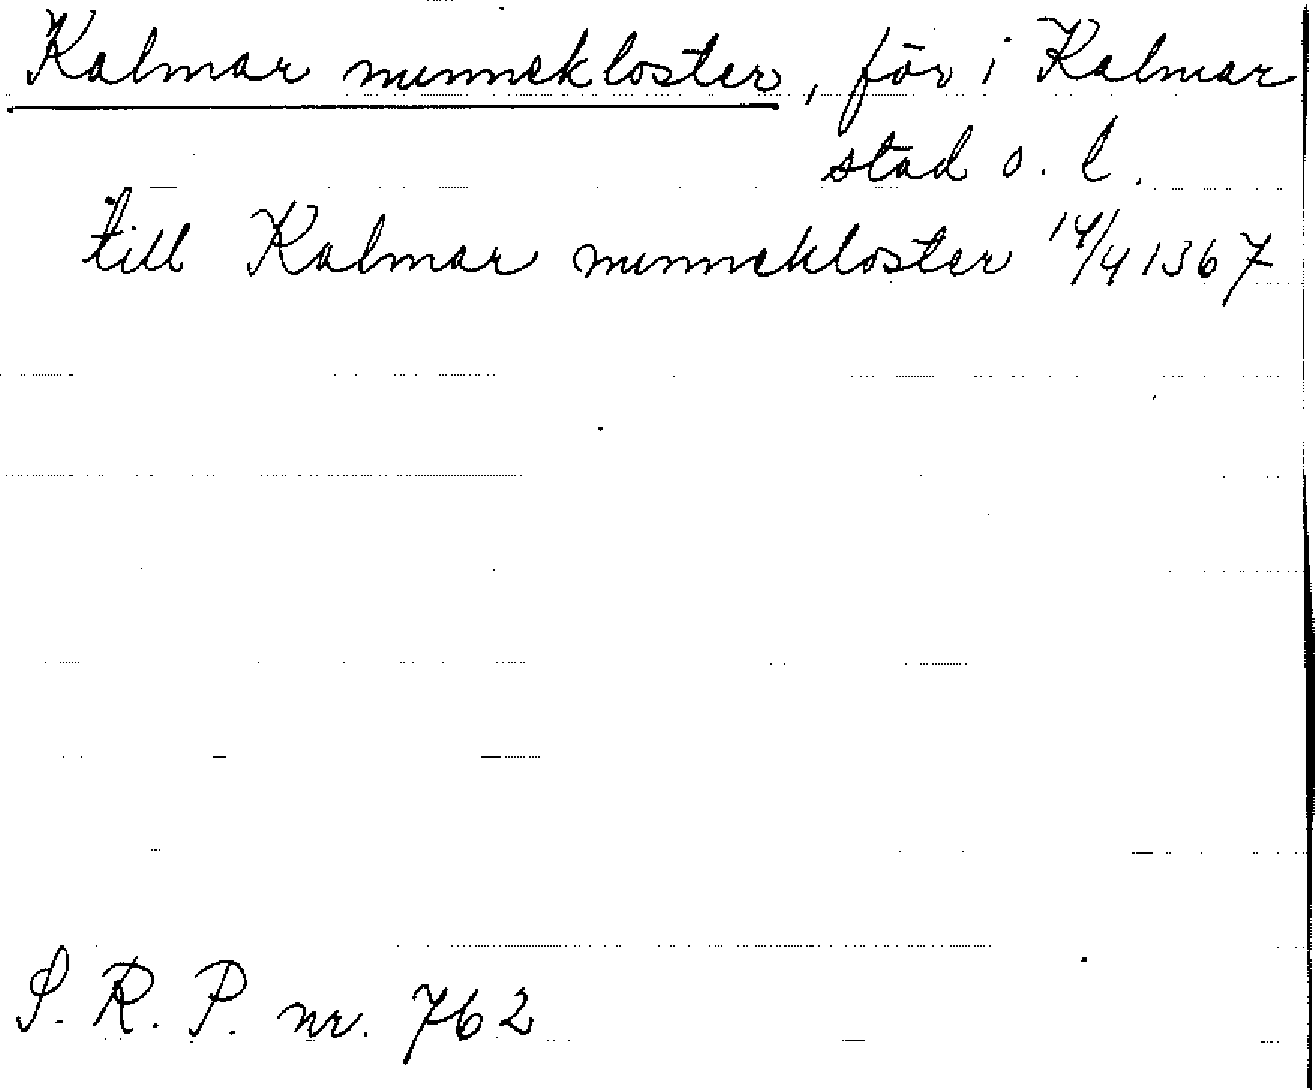 Kalmar nunnekloster, för i Kalmar
stad o. l.
till Kalmar nunnekloster 14/4 1367
S. R. P. nr. 762